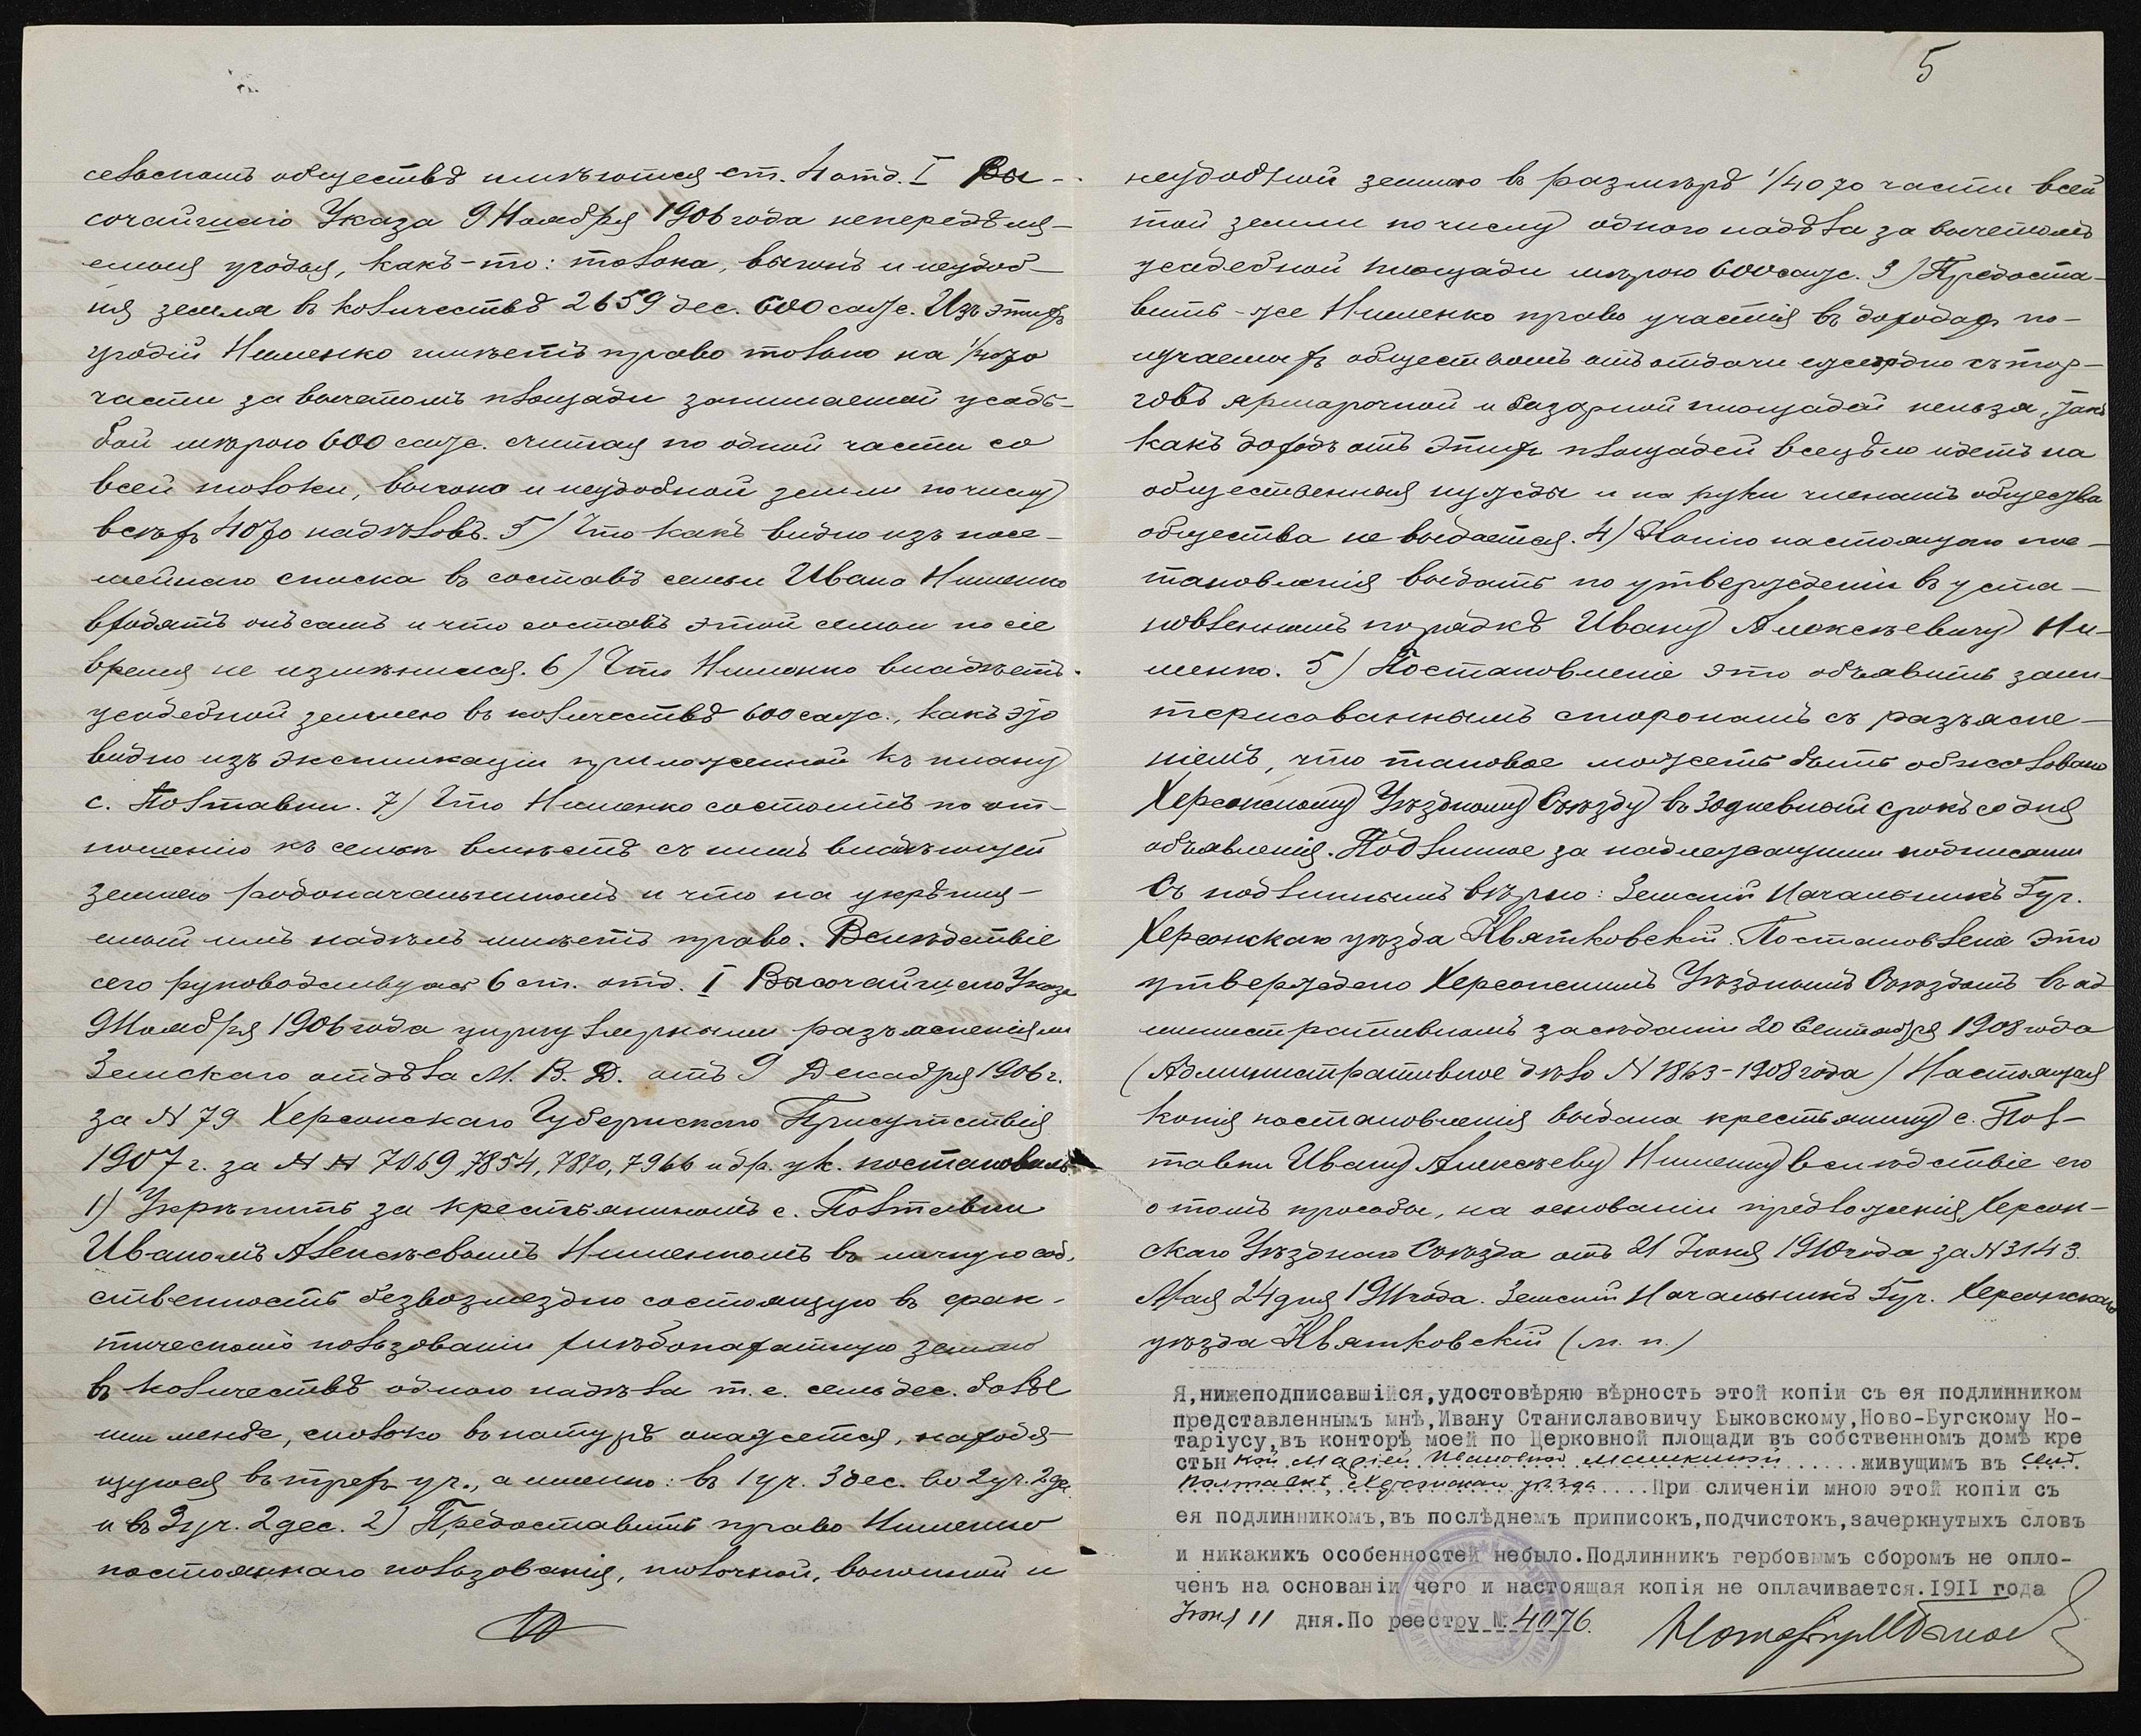 5
сельскомъ обществѣ имѣются ст. 4 отд. I Вы-
сочайшаго Указа 9 Ноября 1906 года непередѣля-
емыя угодья, какъ-то: толока, выгонъ и неудоб-
ная земля въ количествѣ 2659 дес. 600 саж. Изъ этихъ
угодій Нименко имѣетъ право только на 1/4070
части за вычетомъ площади занимаемой усадь-
бой мѣрою 600 саж. считая по одной части со
всей толоки, выгона и неудобной земли по числу
всѣхъ 4070 надѣловъ. 5) Что какъ видно изъ посе-
мейнаго списка въ составъ семьи Ивана Нименко
входятъ онъ самъ и что составъ этой семьи по сіе
время не измѣнился. 6) Что Нименко владѣетъ
усадебной землею въ количествѣ 600 саж., какъ это
видно изъ экспликаціи приложенной къ плану
с. Полтавки. 7) Что Нименко состоитъ по от-
ношенію къ семьѣ вмѣстѣ съ нимъ владѣющей
землею родоначальникомъ и что на укрѣпля-
емый имъ надѣлъ имѣетъ право. Вслѣдствіе
сего руководствуясь 6 ст. отд. I Высочайшаго Указа
9 Ноября 1906 года циркулярными разъясненіями
Земскаго отдѣла М. В. Д. отъ 9 Декабря 1906 г.
за N 79 Херсонскаго Губернскаго Присутствія
1907 г. за N N 7069, 7854, 7870, 7966 и др. ук. постановилъ
1) Укрѣпить за крестьяниномъ с. Полтавки
Иваномъ Алексѣевымъ Нименкомъ въ личную соб-
ственность безвозмездно состоящую въ фак-
тическомъ пользованіи хлѣбопахатную землю
въ количествѣ одного надѣла т. е. семь дес. болѣе
или менѣе, сколько въ натурѣ окажется, находя-
щуюся въ трехъ уч., а именно: въ 1 уч. 3 дес. во 2 уч. 2 дес.
и въ 3 уч. 2 дес. 2) Предоставить право Нименко
постояннаго пользованія, толочной, выгонной и
неудобной землею въ размѣрѣ 1/4070 части всей
той земли по числу одного надѣла за вычетомъ
усадебной площади мѣрою 600 саж. 3) Предоста-
вить-же Нименко право участія въ доходахъ по-
лучаемыхъ обществомъ отъ отдачи ежегодно съ тор-
говъ ярмарочной и базарной площадей нельзя, такъ
какъ доходъ отъ этихъ площадей всецѣло идетъ на
общественныя нужды и на руки членамъ общества
общества не выдается. 4) Копію настоящаго пос-
тановленія выдать по утвержденіи въ уста-
новленномъ порядкѣ Ивану Алексѣевичу Ни-
менко. 5) Постановленіе это объявить заин-
терисованнымъ сторонамъ съ разъясне-
ніемъ, что таковое можетъ быть обжаловано
Херсонскому Уѣздному Съѣзду въ 30 дневный срокъ со дня
объявленія. Подлинное за надлежащими подписами
Съ подлиннымъ вѣрно: Земскій Начальникъ 5 уч.
Херсонскаго уѣзда Квятковскій. Постановленіе это
утверждено Херсонскимъ Уѣзднымъ Съѣздомъ въ ад-
министративномъ засѣданіи 20 Сентября 1908 года
(Административное дѣло N 1863-1908 года) Настоящая
копія постановленія выдана крестьянину с. Пол-
тавки Ивану Алексѣеву Нименку вслѣдствіе его
о томъ просьбы, на основаніи предложенія Херсон-
скаго Уѣзднаго Съѣзда отъ 21 Іюня 1910 года за N 3143.
Мая 24 дня 1911 года. Земскій Начальникъ 5 уч. Херсонскаго
уѣзда Квятковскій (м. п.)
Я,нижеподписавшійся,удостовѣряю вѣрность этой копіи съ ея подлинником
представленнымъ мнѣ,Ивану Станиславовичу Быковскому,Ново-Бугскому Но-
таріусу,въ конторѣ моей по Церковной площади въ собственномъ домѣ кре
стьянкой Маріей Ивановной ......живущимъ въ селѣ
Полтавкѣ, Херсонскаго уѣзда....При сличеніи мною этой копіи съ
ея подлинникомъ,въ послѣднемъ приписокъ,подчистокъ,зачеркнутыхъ словъ
и никакихъ особенностей небыло.Подлинникъ гербовымъ сборомъ не опло-
ченъ на основаніи чего и настоящая копія не оплачивается.1911 года
Іюня 11 дня.По реестру №.4076.
Нотаріусъ